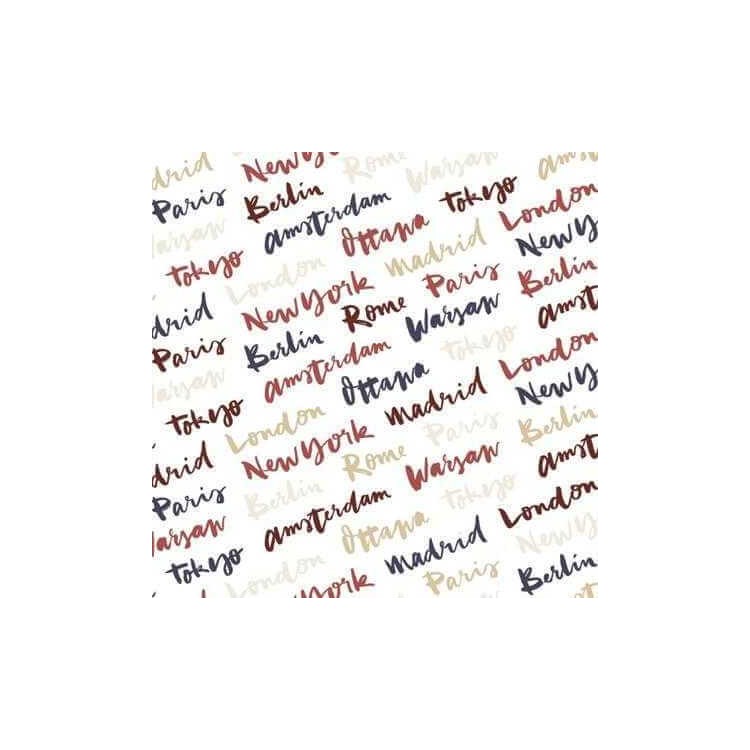 adrid New York Rome Warsaw Amst
Paris Berlin Amsterdam Tokyo London
arsaw Ottawa Madrid New Y
Tokyo London Paris Berlin
drid New York Rome Warsaw Amst
Paris Berlin Amsterdam Tokyo London
arsaw Ottawa Madrid New Y
Tokyo London Paris Berlin
adrid New York Rome Warsaw Amst
Paris Berlin Amsterdam Tokyo London
Warsaw Ottawa Madrid New Y
Tokyo London Paris Berlin
New York